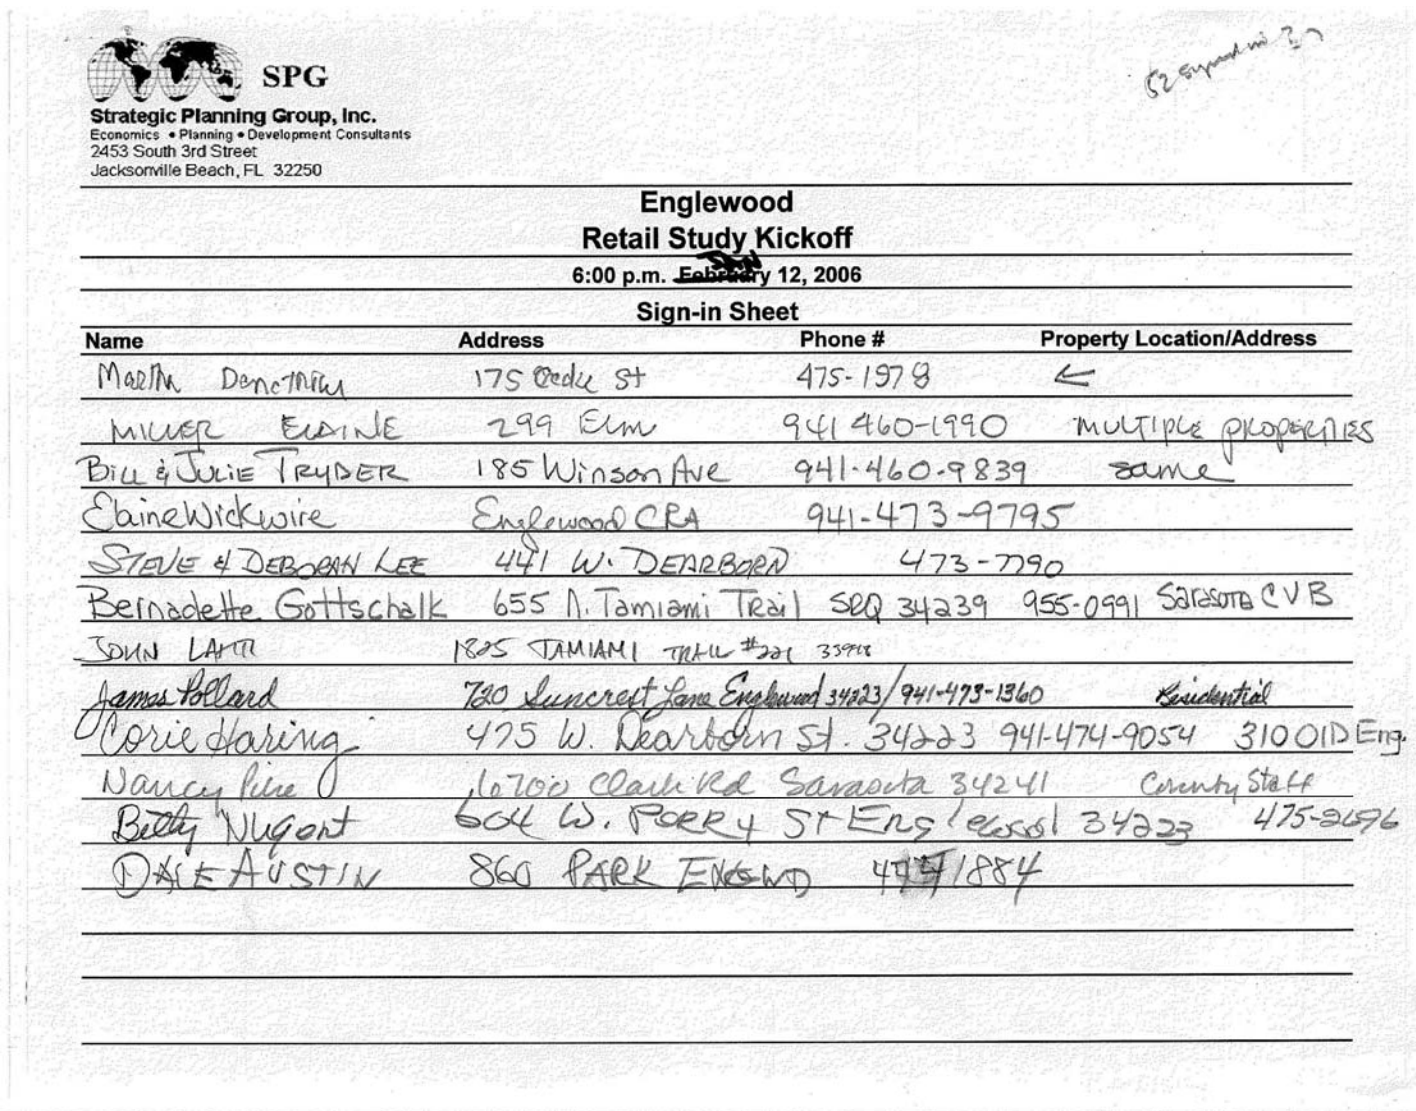 SPG
Strategic Planning Group, Inc.
Economics • Planning • Development Consultants
2453 South 3rd Street
Jacksonville Beach, FL 32250
Englewood
Retail Study Kickoff
JAN
6:00 p.m. February 12, 2006
Sign-in Sheet
Name Address Phone # Property Location/Address
175 St 475-1978 ←
MILLER ELAINE 299 Elm 941 460-1990 MULTIPLE PROPERTIES
BILL & JULIE TRYDER 185 Winson Ave 941-460-9839 same
Elaine Wickwire Englewood CRA 941-473-9795
STEVE & DEBORAH LEE 441 W. DEARBORN 473-7790
Bernadette Gottschalk 655 N. Tamiami Trail SRQ 34239 955-0991 Sarasota CVB
JOHN 1825 TAMIAMI TRAIL #221
James Pollard 720 Suncrest Lane Englewood 34223/941-473-1360 Residential
Corie Haring 475 W. Dearborn St. 34223 941-474-9054 310 OlD Eng.
Nancy 6700 Clark Rd Sarasota 34241 County Staff
Betty Nugent 604 W. PERRY ST Englewood 34223 475-2696
DALE AUSTIN 860 PARK ENGLWD 1884